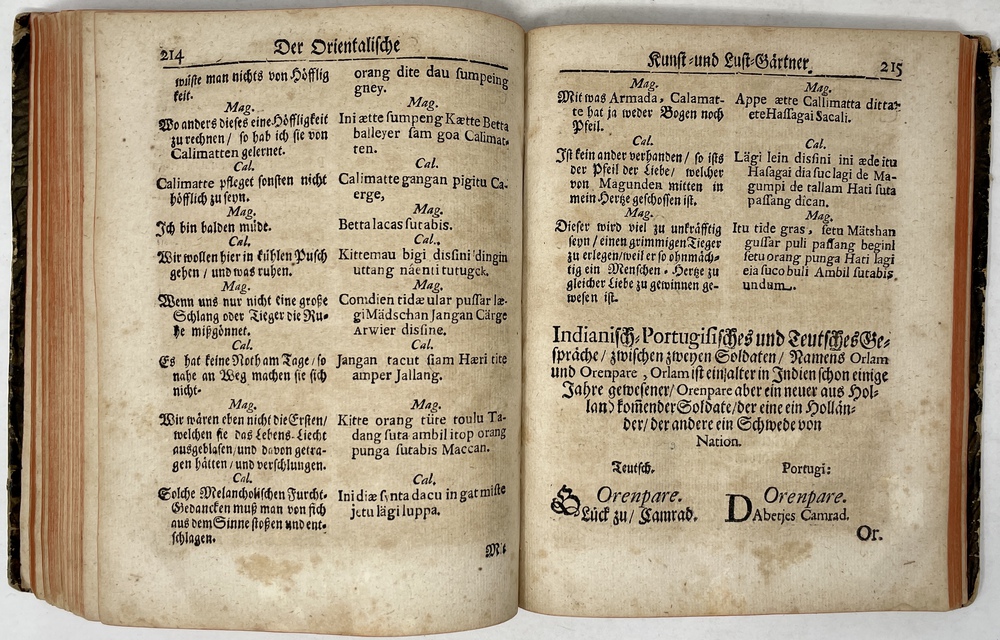 214
Der Orientalische
wüste man nichts von Höfflig
keit.
Mag.
Wo anders dieses eine Höffligkeit
zu rechnen / so hab ich sie von
Calimatten gelernet.
Cal.
Calimatte pfleget sonsten nicht
höfflich zu seyn.
Mag.
Ich bin balden müde.
Cal.
Wir wollen hier in kühlen Pusch
gehen / und was ruhen.
Mag.
Wenn uns nur nicht eine große
Schlang oder Tieger die Ru-
he mißgönnet.
Cal.
Es hat keine Noth am Tage / so
nahe an Weg machen sie sich
nicht.
Mag.
Wir wären eben nicht die Ersten /
welchen sie das Lebens-Liecht
ausgeblasen / und davon getra-
gen hätten / und verschlungen.
Cal.
Solche Melancholischen Furcht-
Gedancken muß man von sich
aus dem Sinne stoßen und ent-
schlagen.
orang dite dau sumpeing
gney.
Mag.
Ini ætte sumpeng Kætte Betta
balleyer sam goa Calimat-
ten.
Cal.
Calimatte gangan pigitu Ca-
erge,
Mag.
Betta lacas sutabis.
Cal.
Kittemau bigi dissini dingin
uttang näenti tutugck.
Mag.
Comdien tidæ ular pussar læ-
gi Mädschan Jangan Cärge
Arwier disine.
Cal.
Jangan tacut siam Hæri tite
amper Jallang.
Mag.
Kitte orang türe toulu Ta-
dang suta ambil itop orang
punga sutabis Maccan.
Cal.
Ini diæ dacu in gat miste
jetu lägi luppa.
Mit
Kunst- und Lust-Gärtner.
215
Mag.
Mit was Armada, Calamat-
te hat ja weder Bogen noch
Pfeil.
Cal.
Ist kein ander verhanden / so ists
der Pfeil der Liebe / welcher
von Magunden mitten in
mein Hertze geschossen ist.
Mag.
Dieser wird viel zu unkräfftig
seyn / einen grimmigen Tieger
zu erlegen / weil er so ohnmäch-
tig ein Menschen-Hertze zu
gleicher Liebe zu gewinnen ge-
wesen ist.
Mag.
Appe ætte Callimatta ditta-
ete Hassagai Sacali.
Cal.
Lägi lein disfini ini æde itu
Hasagai dia suc lagi de Ma-
gumpi de tallam Hati suta
passang dican.
Mag.
Itu tide gras, setu Mätshan
gussar puli passang beginl
setu orang punga Hati lagi
eia suco buli Ambil sutabis
undam.
Indianisch-Portugisisches und Teutsches Ge-
spräche / zwischen zweyen Soldaten / Namens Orlam
und Orenpare, Orlam ist ein alter in Indien schon einige
Jahre gewesener / Orenpare aber ein neuer aus Hol-
land kom̃ender Soldate / der eine ein Hollän-
der / der andere ein Schwede von
Nation.
Teutsch.
Orenpare.
Glück zu / Camrad.
Portugi:
Orenpare.
DAbetjes Camrad.
Or.